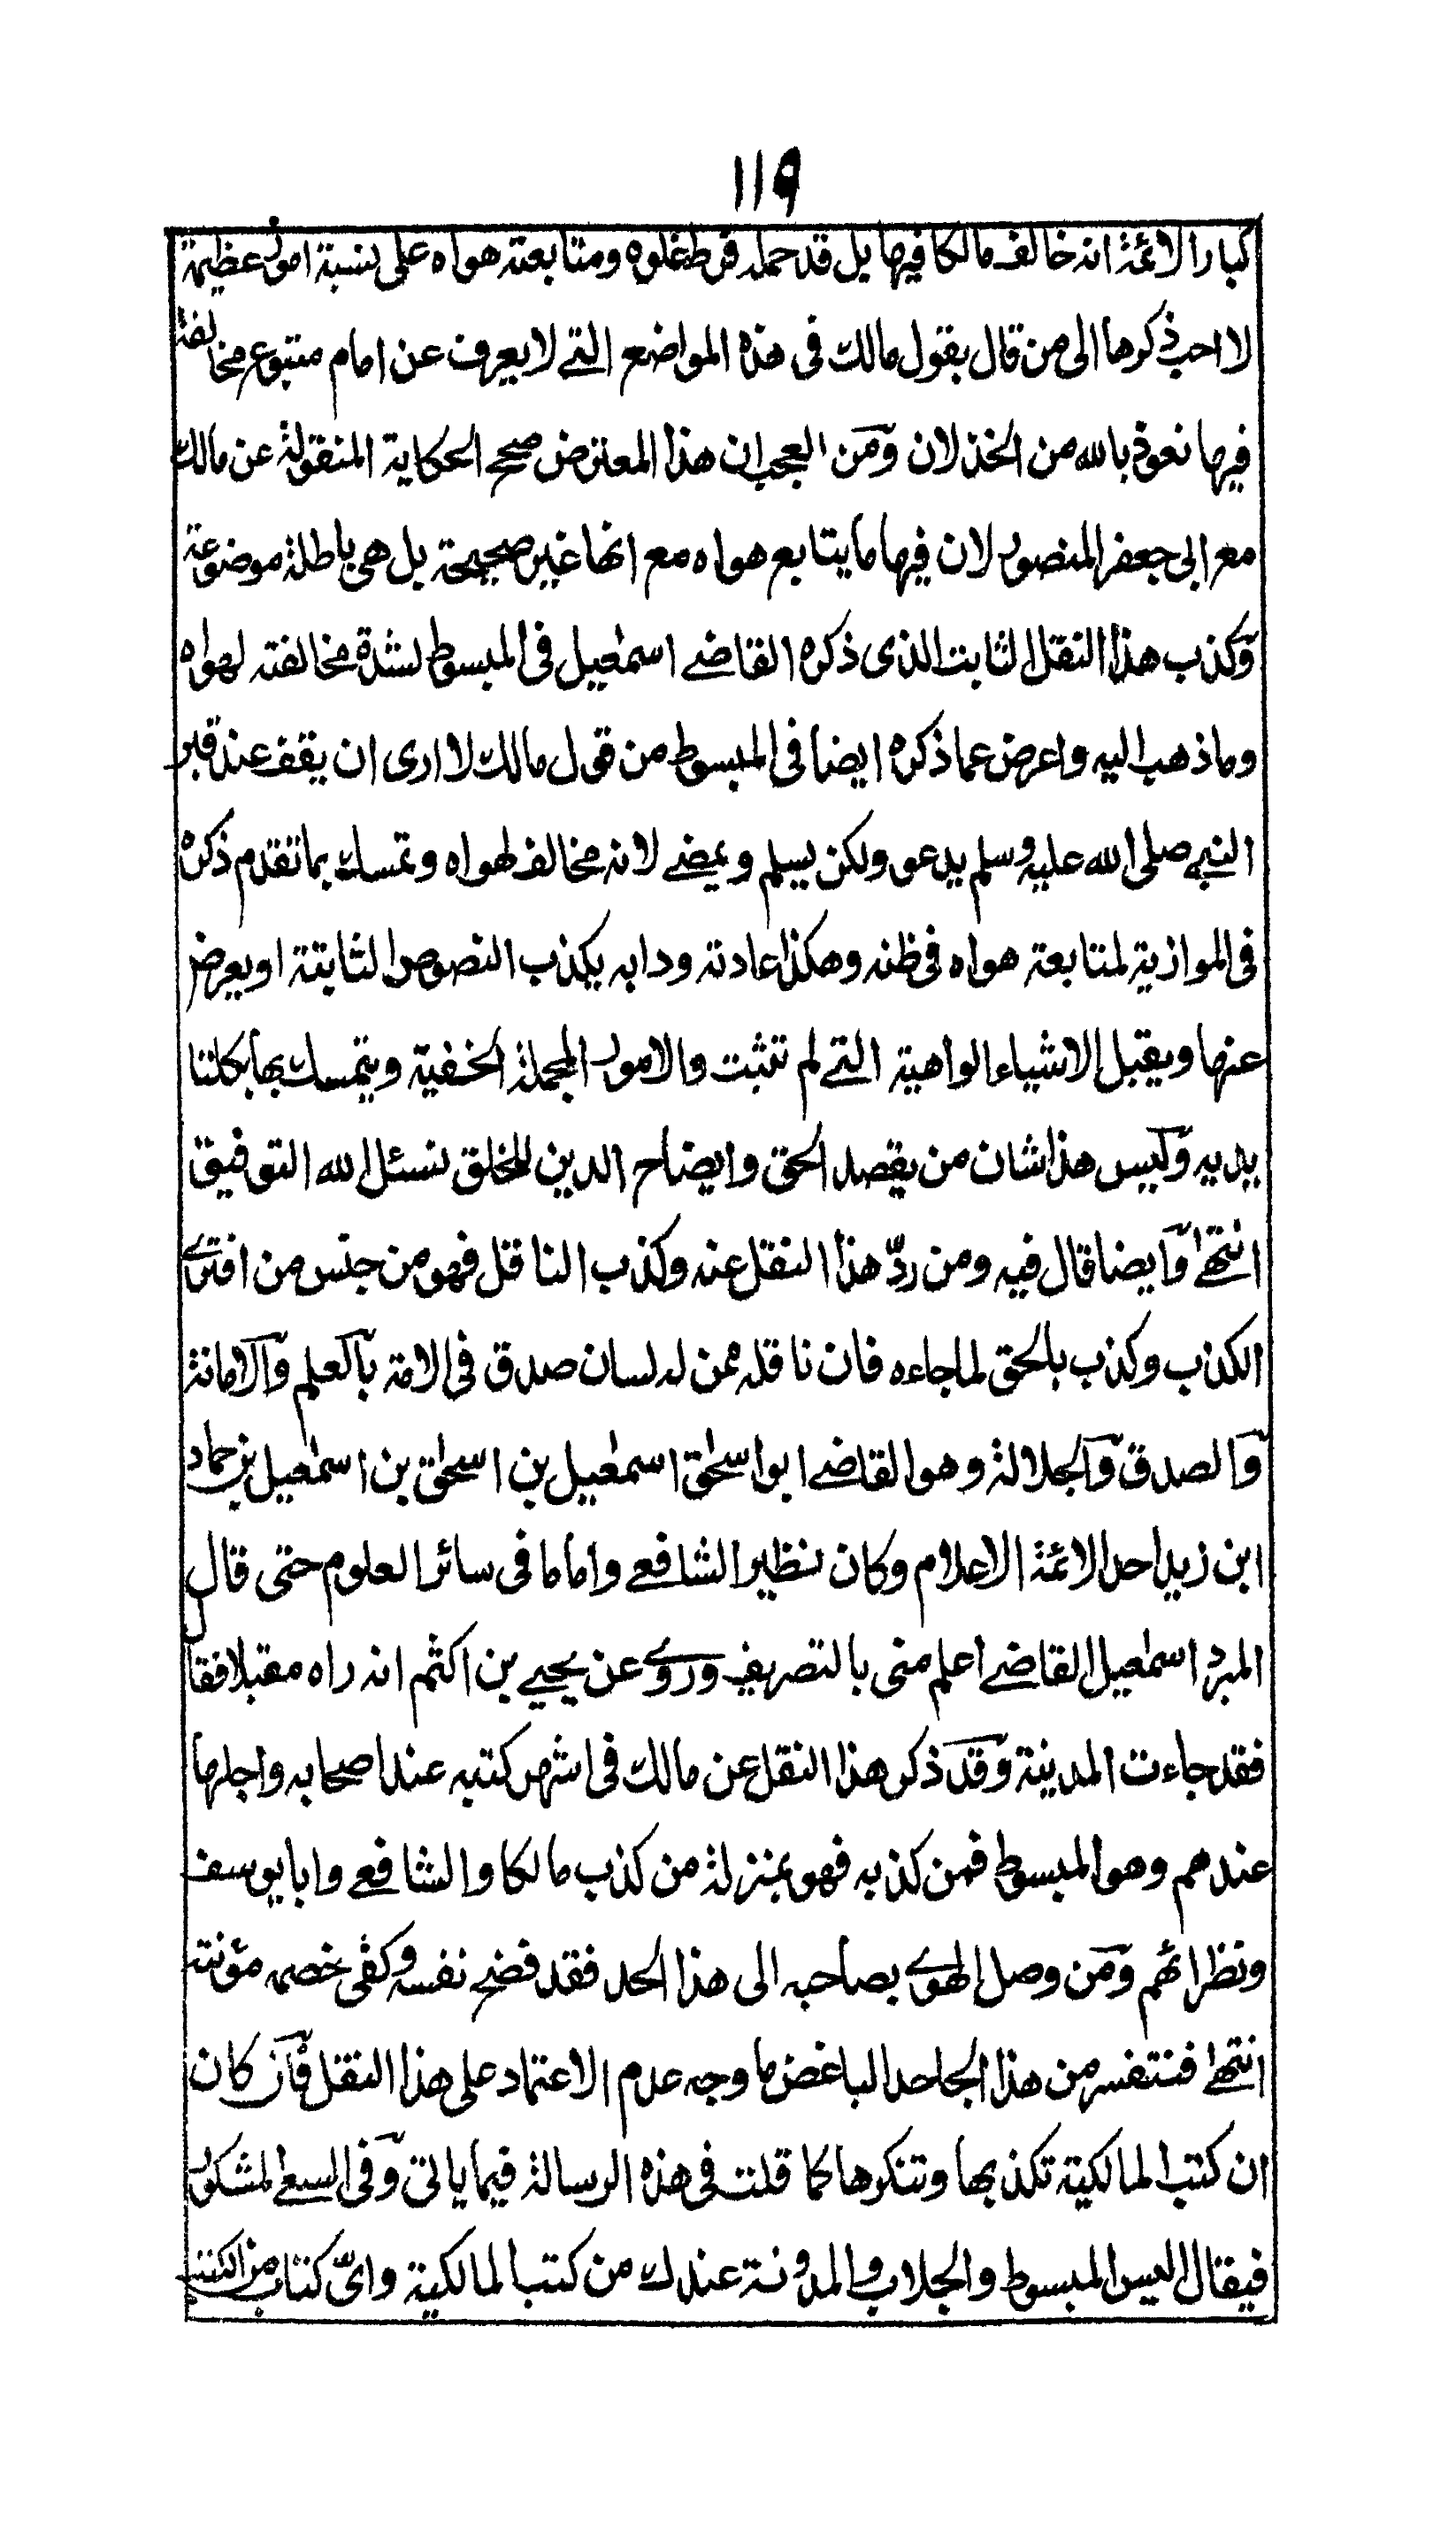 ١١٩
كبار الائمة انه خالف مالكا فيها بل قد حمله فرط غلوه ومتابعته هواه على نسبة امور عظيمة
لا احب ذكرها الى من قال بقول مالك فى هذه المواضع التے لا يعرف عن امام متبوع مخالفة
فيها نعوذ بالله من الخذلان ومن العجب ان هذا المعترض صحح الحكاية المنقولة عن مالك
مع ابى جعفر المنصور لان فيها ما يتابع هواه مع انها غير صحيحة بل هى باطلة موضوعة
وكذب هذا النقل الثابت الذى ذكره القاضے اسمعيل فى المبسوط لشدة مخالفته لهواه
وما ذهب اليه واعرض عما ذكره ايضا فى المبسوط من قول مالك لا ارى ان يقف عند قبر
النبے صلى الله عليه وسلم يدعو ولكن يسلم ويمضے لانه مخالف لهواه وتمسك بما تقدم ذكره
فى الموازية لمتابعة هواه فى ظنه وهكذا عادته ودابه يكذب النصوص الثابتة او يعرض
عنها ويقبل الاشياء الواهية التے لم تثبت والامور المجملة الخفية ويتمسك بها بكلتا
يديه وليس هذا شان من يقصد الحق وايضاح الدين للخلق نسئل الله التوفيق
انتهےٰ وايضا قال فيه ومن ردّ هذا النقل عنه وكذب الناقل فهو من جنس من افترے
الكذب وكذب بالحق لما جاءه فان ناقله ممن له لسان صدق فى الامة بالعلم والامانة
والصدق والجلالة وهو القاضے ابو اسحٰق اسمٰعيل بن اسحٰق بن اسمٰعيل بن حماد
ابن زيد احد الائمة الاعلام وكان نظير الشافعے واماما فى سائر العلوم حتى قال
المبرد اسمٰعيل القاضے اعلم منى بالتصريف وروے عن يحيے بن اكثم انه راه مقبلا فقال
فقد جاءت المدينة وقد ذكر هذا النقل عن مالك فى اشهر كتبه عند اصحابه واجلها
عندهم وهو المبسوط فمن كذب به فهو بمنزلة من كذب مالكا والشافعے وابا يوسف
ونظرائهم ومن وصل الهوے بصاحبه الى هذا الحد فقد فضح نفسه وكفى خصمه مؤنته
انتهےٰ فنتفسر من هذا الجاحد الباغض ما وجه عدم الاعتماد على هذا النقل فان كان
ان كتب المالكية تكذبها وتنكرها كما قلت فى هذه الرسالة فيما ياتى وفى السعے المشكور
فيقال اليس المبسوط والجلاب والمدونة عندك من كتب المالكية واىّ كتاب من الكتب